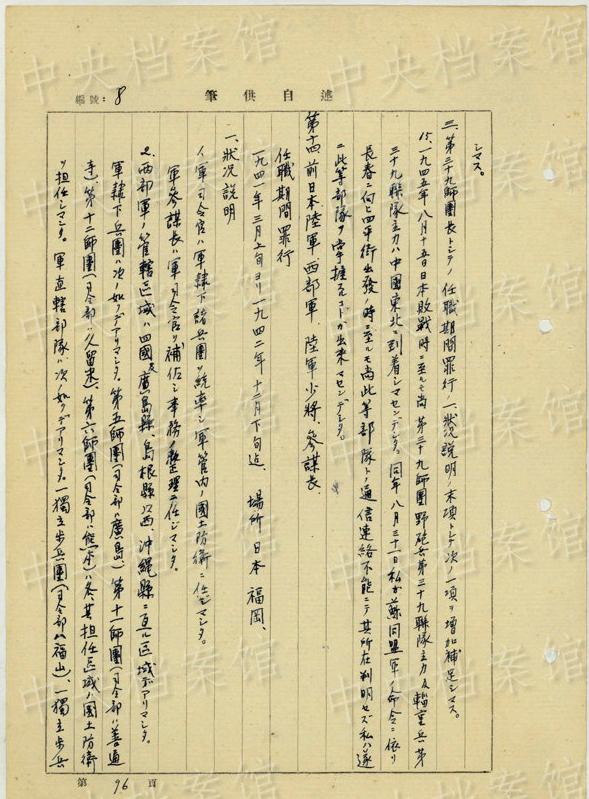 中央档案馆
編號：8
筆供自述
シマス。
三、第三十九師團長トシテノ任職期間罪行一、狀況説明ノ末項トシテ次ノ一項ヲ增加補足シマス。
15、一九四五年八月十五日日本敗戰時ニ至ルモ尚第三十九師團野砲兵第三十九聯隊主力及輜重兵第
三十九聯隊主力ハ中國東北ニ到着シマセンデシタ。同年八月三十一日私ガ蘇同盟軍ノ命令ニ依リ
長春ニ向ヒ四平街出發ノ時ニ至ルモ尚此等部隊トノ通信連絡不能ニテ其所在判明セズ私ハ遂
ニ此等部隊ヲ掌握スルコトガ出來マセンデシタ。
第十四 前日本陸軍、西部軍、陸軍少將、參謀長、
任職期間罪行
一九四一年三月上旬ヨリ一九四二年十二月下旬迄、場所 日本 福岡、
一、狀況説明
1、軍司令官ハ軍隷下諸兵團ヲ統率シ軍管内ノ國土防衛ニ任ジマシタ。
軍參謀長ハ軍司令官ヲ補佐シ事務ヲ整理ニ任シマシタ。
2、西部軍ノ管轄區域ハ四國及廣島縣、島根縣以西、沖縄縣ニ亘ル區域デアリマシタ。
軍隷下兵團ハ次ノ如クデアリマシタ。第五師團（司令部ハ廣島）、第十一師團（司令部ハ善通
寺）、第十二師團（司令部ハ久留米）、第六師團（司令部ハ熊本）ハ各、其担任區域ノ國土防衛
ヲ担任シマシタ。軍直轄部隊ハ次ノ如クデアリマシタ。一獨立步兵團（司令部ハ福山）、一獨立步兵
第 96 頁